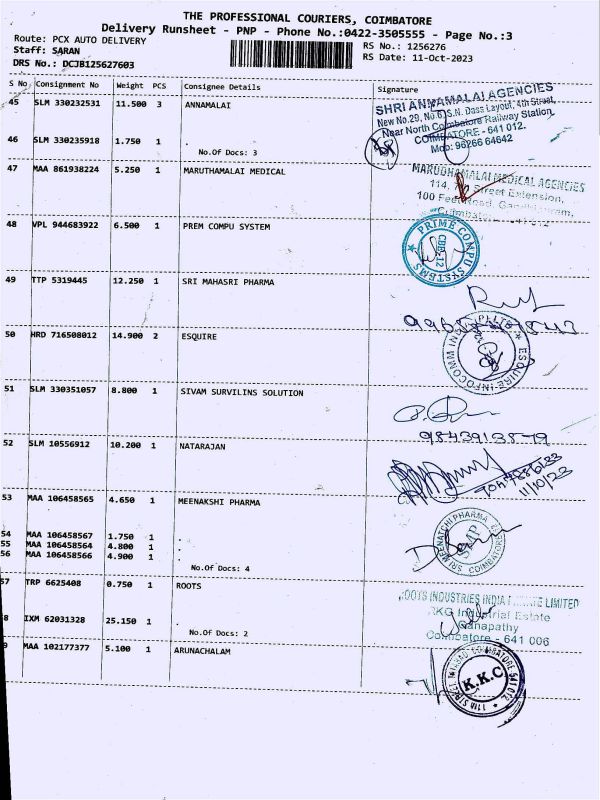 THE PROFESSIONAL COURIERS, COIMBATORE
Delivery Runsheet - PNP - Phone No.:0422-3505555 - Page No.:3
Route: PCX AUTO DELIVERY
Staff: SARAN
DRS No.: DCJB125627603
RS No.: 1256276
RS Date: 11-Oct-2023
S No Consignment No Weight PCS Consignee Details Signature
45 SLM 330232531 11.500 3 ANNAMALAI
SHRI ANNAMALAI AGENCIES
New No.29, No.6, S.N. Dass Layout, 4th Street,
Near North Coimbatore Railway Station
COIMBATORE - 641 012.
Mob: 96266 64642
46 SLM 330235918 1.750 1 .
No.Of Docs: 3
47 MAA 861938224 5.250 1 MARUTHAMALAI MEDICAL
MARUDHAMALAI MEDICAL AGENCIES
114, Street Extension,
100 Feet Road, Gandhipuram,
Coimbatore
48 VPL 944683922 6.500 1 PREM COMPU SYSTEM
PRIME COMPU SYSTEMS
CBE-12
49 TTP 5319445 12.250 1 SRI MAHASRI PHARMA
50 HRD 716508012 14.900 2 ESQUIRE
ESQUIRE INFOCOMM
51 SLM 330351057 8.800 1 SIVAM SURVILINS SOLUTION
9843913879
52 SLM 10556912 10.200 1 NATARAJAN
11/10/23
53 MAA 106458565 4.650 1 MEENAKSHI PHARMA
SRI MEENATCHI PHARMA
COIMBATORE
54 MAA 106458567 1.750 1 .
55 MAA 106458564 4.800 1 .
56 MAA 106458566 4.900 1 .
No.Of Docs: 4
57 TRP 6625408 0.750 1 ROOTS
ROOTS INDUSTRIES INDIA LIMITED
RKG Industrial Estate
Ganapathy
Coimbatore - 641 006
8 IXM 62031328 25.150 1 .
No.Of Docs: 2
9 MAA 102177377 5.100 1 ARUNACHALAM
K.K.C